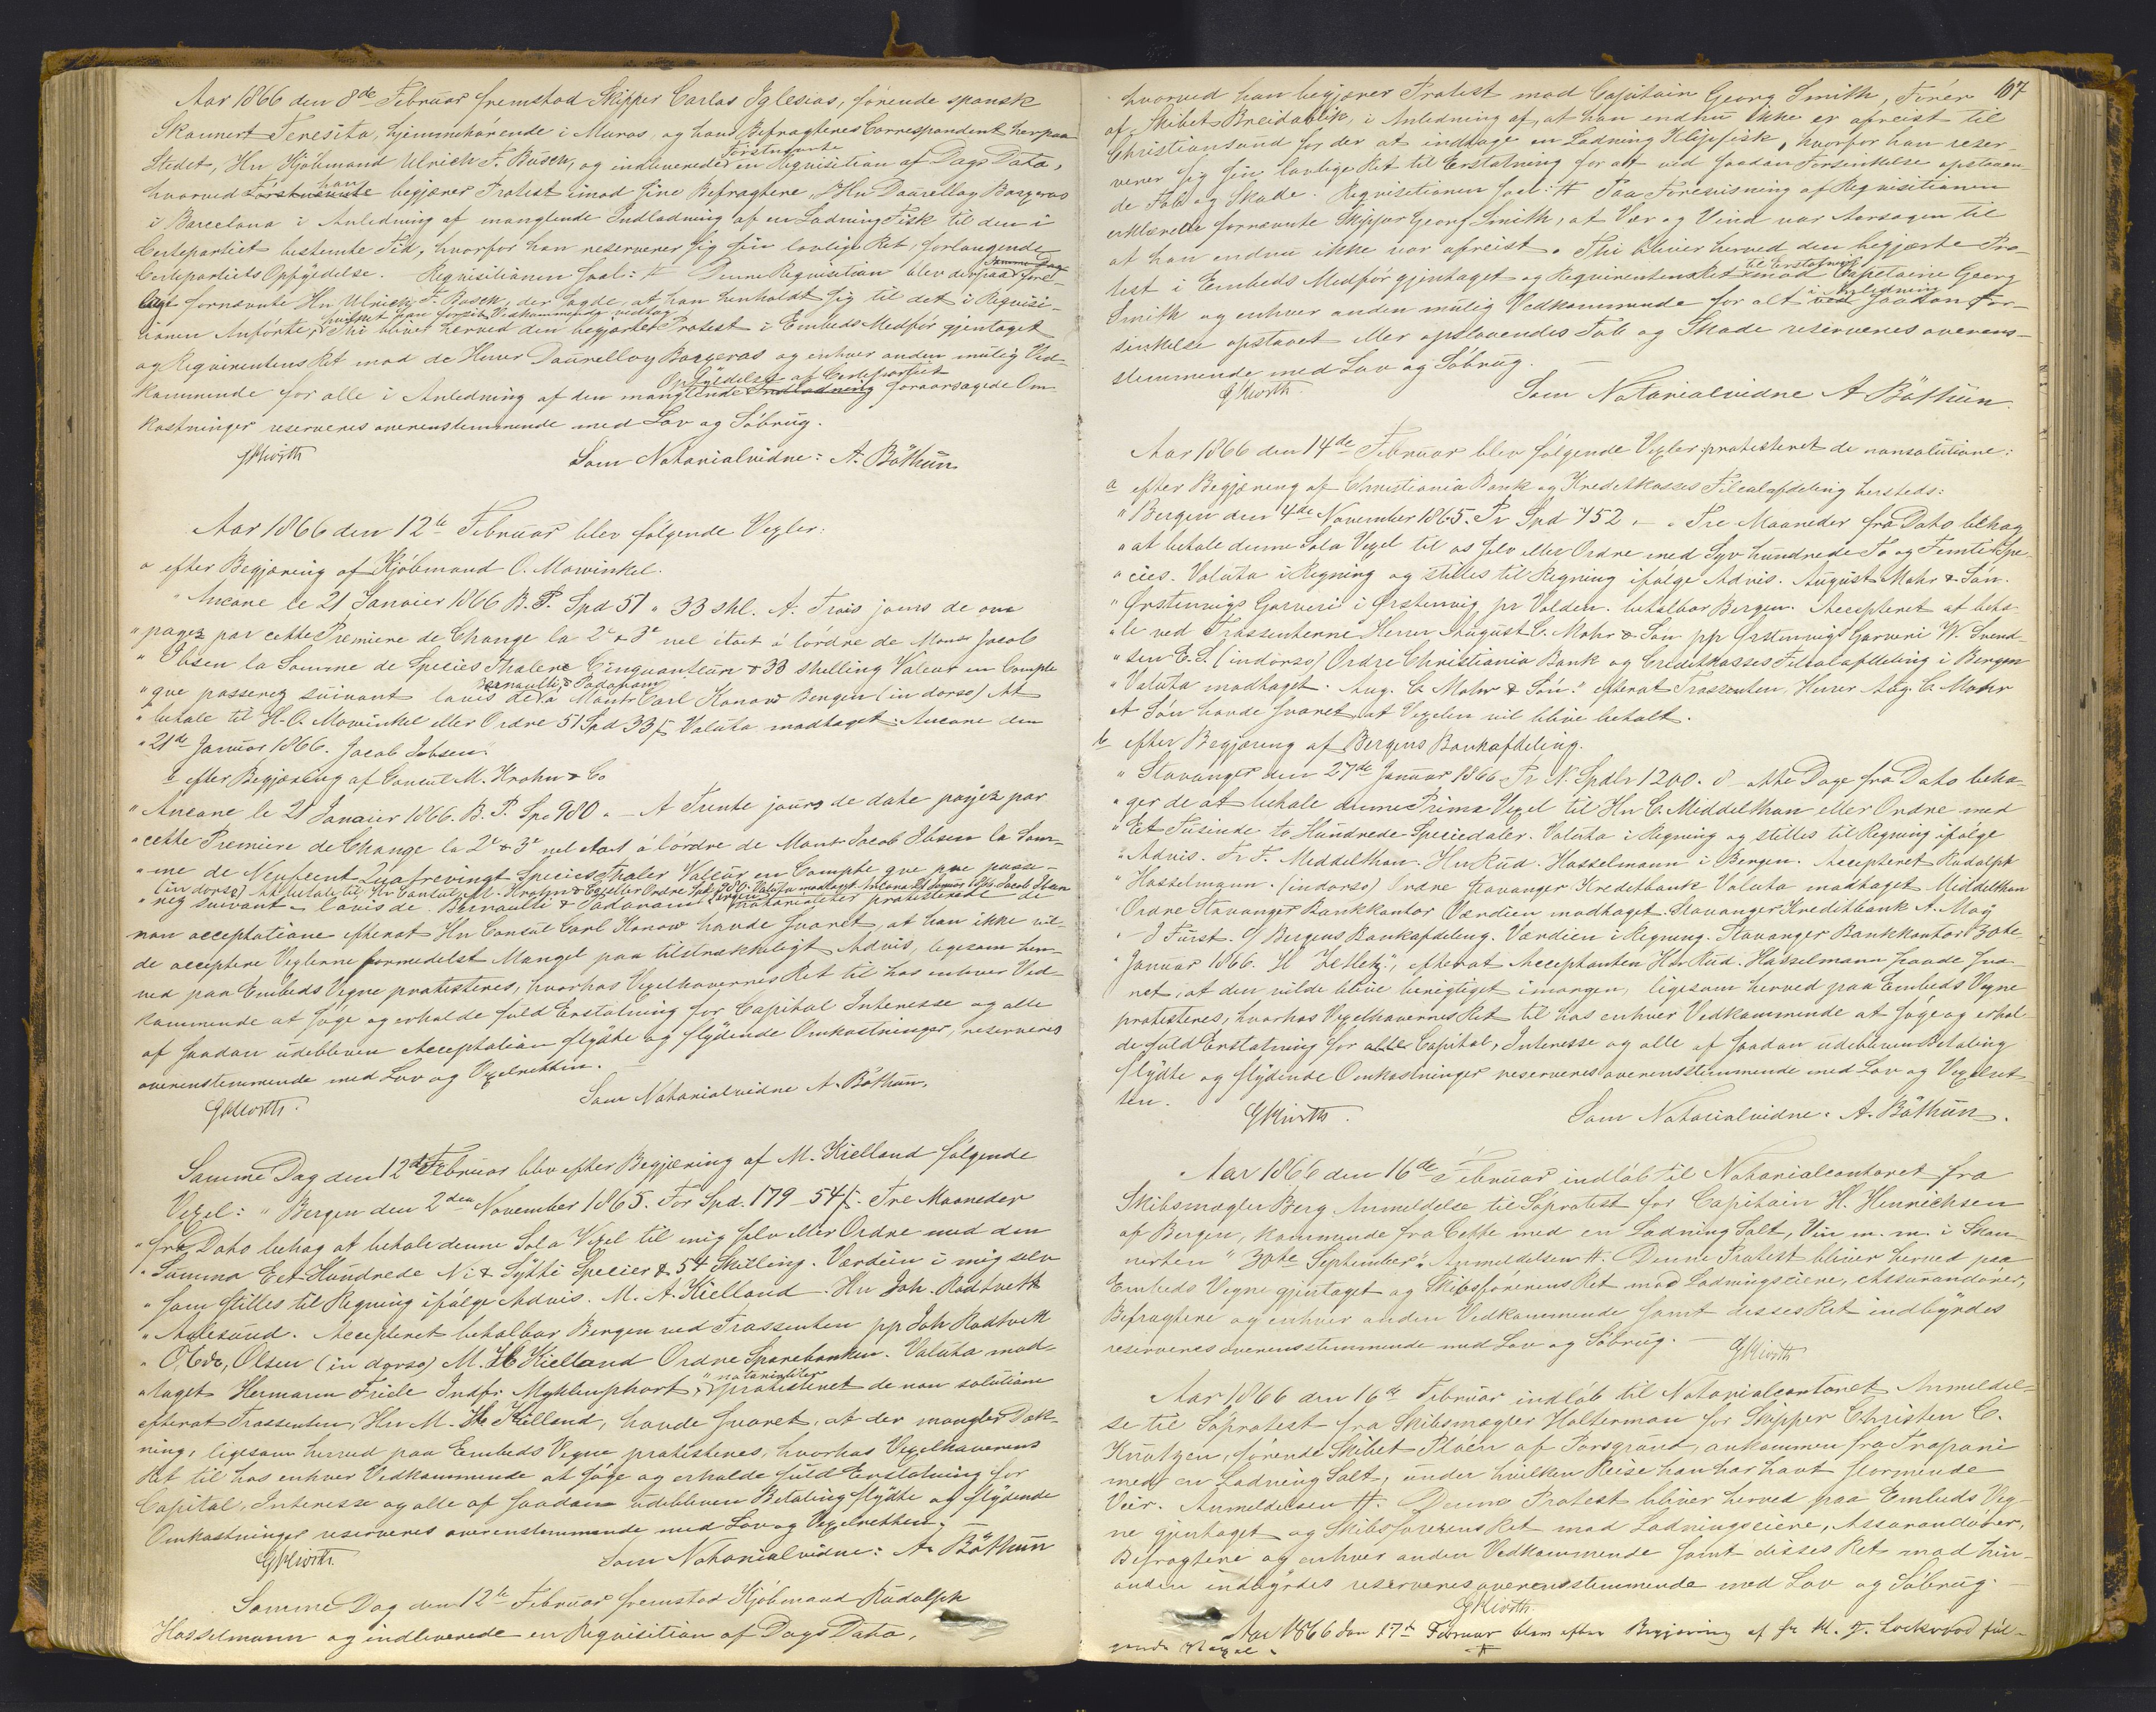 Aar 1866 den 8de Februar fremstod Skipper Carlos Iglesias, førende spansk
Skonnert Teresita, hjemmehørende i Muros, og hans Befragteres Correspondent her paa
Stedet, Hr Kjøbmand Ulrich F. Busch, og indleverede førstnævnte en Reqvisition af Dags Dato,
hvorved Førstnævnte han begjærer Protest imod sine Befragtere, DHr Daurella y Borgeras
i Barcelona i Anledning af manglende Indladning af en Ladning Fisk til den i
Certepartiet bestemte Tid, hvorfor han reserverer sig sin lovlige Ret, forlangende
Certepartiets Opfyldelse. Reqvisitionen saal: # Denne Reqvisition blev derpaa samme Dag fore-
lagt fornævnte Hr Ulrich F. Busch, der sagde, at han henholdt sig til det i Reqvisi-
tionen Anførte, hvilket han forsit Vedkommende vedtog. Thi bliver herved den begjærte Protest i Embeds Medfør gjentaget
og Reqvirentens Ret mod de Herrer Daurella y Borgeras og enhver anden mulig Ved-
kommende for alle i Anledning af den manglende Indladning Opfyldelse af Certepartiet foraarsagede Om-
kostninger reserveres overenstemmende med Lov og Søbrug.
GKierth
Som Notarialvidne: A. Bøthun
Aar 1866 den 12te Februar blev følgende Vexler:
a efter Begjæring af Kjøbmand O. Mowinkel.
" Ancone le 21 Janvier 1866 B. P. Spd 51 " 33 skl. A. Trois jours de vue
" payez par cette Premiere de Change la 2e & 3e nel étant á lórdre de Monsr Jacob
" Ibsen la Somme de Species Thalere Cinquanteun & 33 skelling Valeur en Compte
" que passerez suivant lavis de Bernaulli & Padovani à Monsr Carl Konow Bergen (in dorso) At
" betale til H. O. Mowinkel eller Ordre 51 Spd 33 ß Valuta modtaget Ancone den
" 21de Januar 1866. Jacob Ibsen.
b efter Begjæring af Consul M. Krohn & Co
" Ancone le 21 Janvier 1866. B. P. Sp. 980 " – A Trente jours de date payez par
" cette Premiere de Change la 2e & 3e nel etant á lórdre de Monsr Jacob Ibsen la Som-
" me de Neufcent Quatrevingt Speciesthaler Valeur en Compte que passe-
" rez suivant lavis de Bernaulli & Padovani (in dorso) At betale til Hr Consul M. Krohn & Co eller Ordre Spd 980. Valuta modtaget Ancona 21 Januar 1866 Jacob Ibsen Bergen notarialiter protesterede de
non acceptatione efterat Hr Consul Carl Konow havde svaret, at han ikke vil-
de acceptere Vexlerne formedelst Mangel paa tilstrækkeligt Advis, ligesom her-
ved paa Embeds Vegne protesteres, hvorhos Vexelhavernes Ret til hos enhver Ved-
kommende at søge og erholde fuld Erstatning for Capital Interesse og alle
af saadan udebleven Acceptation flydte og flydende Omkostninger, reserveres
overenstemmende med Lov og Vexelretten.
GKierth.
Som Notarialvidne A. Bøthun.
Samme Dag den 12te Februar blev efter Begjæring af M. Kielland følgende
Vexel: " Bergen den 2den November 1865. For Spd. 179 – 54 ß. Tre Maaneder
" fra Dato behag at betale denne Sola Vexel til mig selv eller Ordre med den
" Summa Eet Hundrede Ni & Sytti Specier & 54 Skilling. Værdien i mig selv
" som stilles til Regning ifølge Advis. M. A. Kielland Hr Joh. Rodtvitt
" Aalesund. Accepteret betalbar Bergen ved Trassenten pp Joh Rodtvitt
" O. Edv, Olsen (in dorso) M. A. Kielland Ordre Sparebanken. Valuta mod-
" taget Hermann Friele Indfr. Myhlenphort", notarialiter protesteret de non solutione
efterat Trassenten, Hr M. A. Kielland, havde svaret, at der mangler Dæk-
ning, ligesom herved paa Embeds Vegne protesteres, hvorhos Vexelhaverens
Ret til hos enhver Vedkommende at søge og erholde fuld Erstatning for
Capital, Interesse og alle af saadan udebleven Betaling flydte og flydende
Omkostninger reserveres overenstemmende med Lov og Vexelretten.
GKierth.
Som Notarialvidne: A. Bøthun
Samme Dag den 12te Februar fremstod Kjøbmand Rudolph
Hasselmann og indleverede en Reqvisition af Dags Dato,
107
hvorved han begjærer Protest mod Capitain Georg Smith, Fører
af Skibet Breidablik, i Anledning af, at han endnu ikke er afreist til
Christiansund for der at indtage en Ladning Klipfisk, hvorfor han reser-
verer sig sin lovlige Ret til Erstatning for alt ved saadan Forsinkelse opstaaen-
de Tab og Skade. Reqvisitionen saal: # Paa Forevisning af Reqvisitionen
erklærede fornævnte Skipper Georg Smith, at Veir og Vind var Aarsagen til
at han endnu ikke var afreist. Thi bliver herved den begjærte Pro-
test i Embeds Medfør gjentaget og Reqvirentens Ret til Erstatning mod Capitaine Georg
Smith og enhver anden mulig Vedkommende for alt ved i Anledning saadan For-
sinkelse opstaaet eller opstaaendes Tab og Skade reserveres overens-
stemmende med Lov og Søbrug.
GKierth.
Som Notarialvidne A Bøthun.
Aar 1866 den 14de Februar blev følgende Vexler protesteret de nonsolutione:
a efter Begjæring af Christiania Bank og Kreditkasses Filialafdeling hersteds:
" Bergen den 4de November 1865. Pr Spd 752. – . Tre Maaneder fra Dato behag
" at betale denne Sola Vexel til os selv eller Ordre med Syv hundrede To og Femti Spe-
" cies. Valuta i Regning og stilles til Regning ifølge Advis. August Mohr & Søn.
" Ørstenvigs Garveri i Ørstenvig pr Volden. betalbar Bergen. Accepteret at beta-
" le ved Trassenterne Herrer August C. Mohr & Søn pp Ørstenvigs Garveri W. Svend-
" sen E. S. (indorso) Ordre Christiania Bank og Creditkasses Filialafdeling i Bergen
" Valuta modtaget. Aug. C. Mohr & Søn." efterat Trassenten, Herrer Aug. C. Mohr
& Søn havde svaret, at Vexelen vil blive betalt.
b efter Begjæring af Bergens Bankafdeling.
" Stavanger den 27de Januar 1866 Pr N. Spdlr 1200. 8 – otte Dage fra Dato beha-
" ger de at betale denne Prima Vexel til Hr C. Middelthon eller Ordre med
" Et Tusinde to Hundrede Speciedaler. Valuta i Regning og stilles til Regning ifølge
" Advis. Fr F. Middelthon. Hr Rud. Hasselmann i Bergen. Accepteret Rudolph
" Hasselmann. (indorso) Ordre Stavanger Kreditbank Valuta modtaget Middelthon
" Ordre Stavanger Bankkontor Værdien modtaget. Stavanger Kreditbank A. Møy
" J Furst. O/ Bergens Bankafdeling. Værdien i Regning. Stavanger Bankkontor 30te
" Januar 1866. H Zetlitz", efterat Acceptanten Hr Rud. Hasselmann havde sva-
ret, at den vilde blive berigtiget imorgen, ligesom herved paa Embeds Vegne
protesteres, hvorhos Vexelhavernes Ret til hos enhver Vedkommende at søge og erhol-
de fuld Erstatning for alle Capital, Interesse og alle af saadan udebleven Betaling
flydte og flydende Omkostninger reserveres overensstemmende med Lov og Vexelret-
ten.
GKierth.
Som Notarialvidne: A. Bøthun.
Aar 1866 den 16de Februar indløb til Notarialcontoret fra
Skibsmægler Berg Anmeldelse til Søprotest for Capitain H. Henrichsen
af Bergen, kommende fra Cette med en Ladning Salt, Vin m. m. i Skon-
nerten "30te September". Anmeldelsen #. Denne Protest bliver herved paa
Embeds Vegne gjentaget og Skibsførerens Ret mod Ladningseiere, Assurandører,
Befragtere og enhver anden Vedkommende samt disses Ret indbyrdes
reserveres overensstemmende med Lov og Søbrug. – GKierth
Aar 1866 den 16de Februar indløb til Notarialcontoret Anmeldel-
se til Søprotest fra Skibsmægler Holterman for Skipper Christen C.
Knutzen, førende Skibet Ploën af Porsgrund, ankommen fra Trapani
med en Ladning Salt, under hvilken Reise han har havt stormende
Veir. Anmeldelsen #. Denne Protest bliver herved paa Embeds Veg-
ne gjentaget og Skibsførerens Ret mod Ladningseiere, Assurandører,
Befragtere og enhver anden Vedkommende samt disses Ret mod hin-
anden indbyrdes reserveres overensstemmende med Lov og Søbrug. –
GKierth.
Aar 1866 den 17de Februar blev efter Begjæring af Hr M. F. Lockwood føl-
gende Vexel: